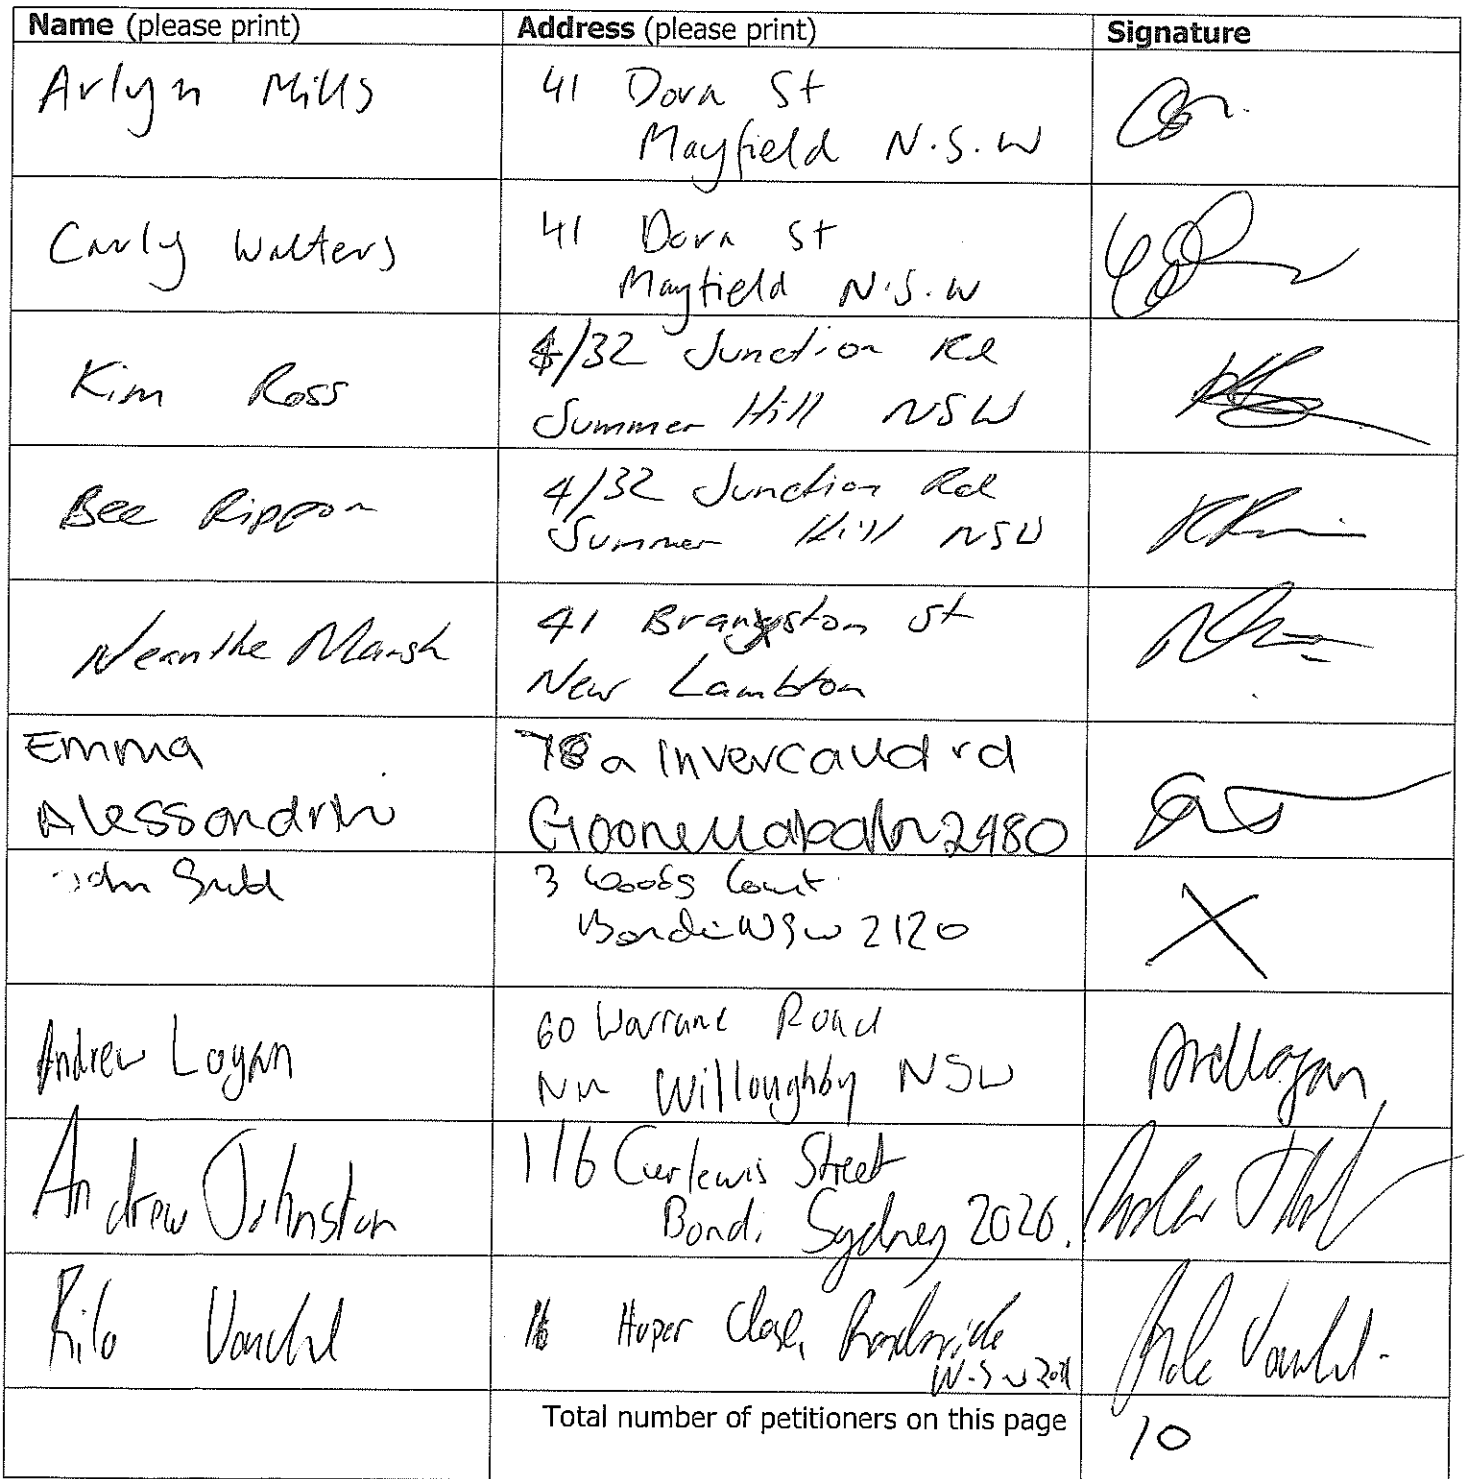 Name (please print) Address (please print) Signature
Arlyn Mills
41 Dora St
Mayfield N.S.W
Carly Walters
41 Dora St
Mayfield N.S.W
Kim Ross
4/32 Junction Rd
Summer Hill NSW
Bee Rippon
4/32 Junction Rd
Summer Hill NSW
Neanthe Marsh
41 Branxston St
New Lambton
Emma
Alessandrini
78a Invercauld rd
Goonellabah 2480
John
3 Woods Court
Bondi NSW 2120
Andrew Logan
60 Warrane Road
Willoughby NSW
Andrew Johnston
1/6 Curlewis Street
Bondi Sydney 2026.
16 Close,
Total number of petitioners on this page 10